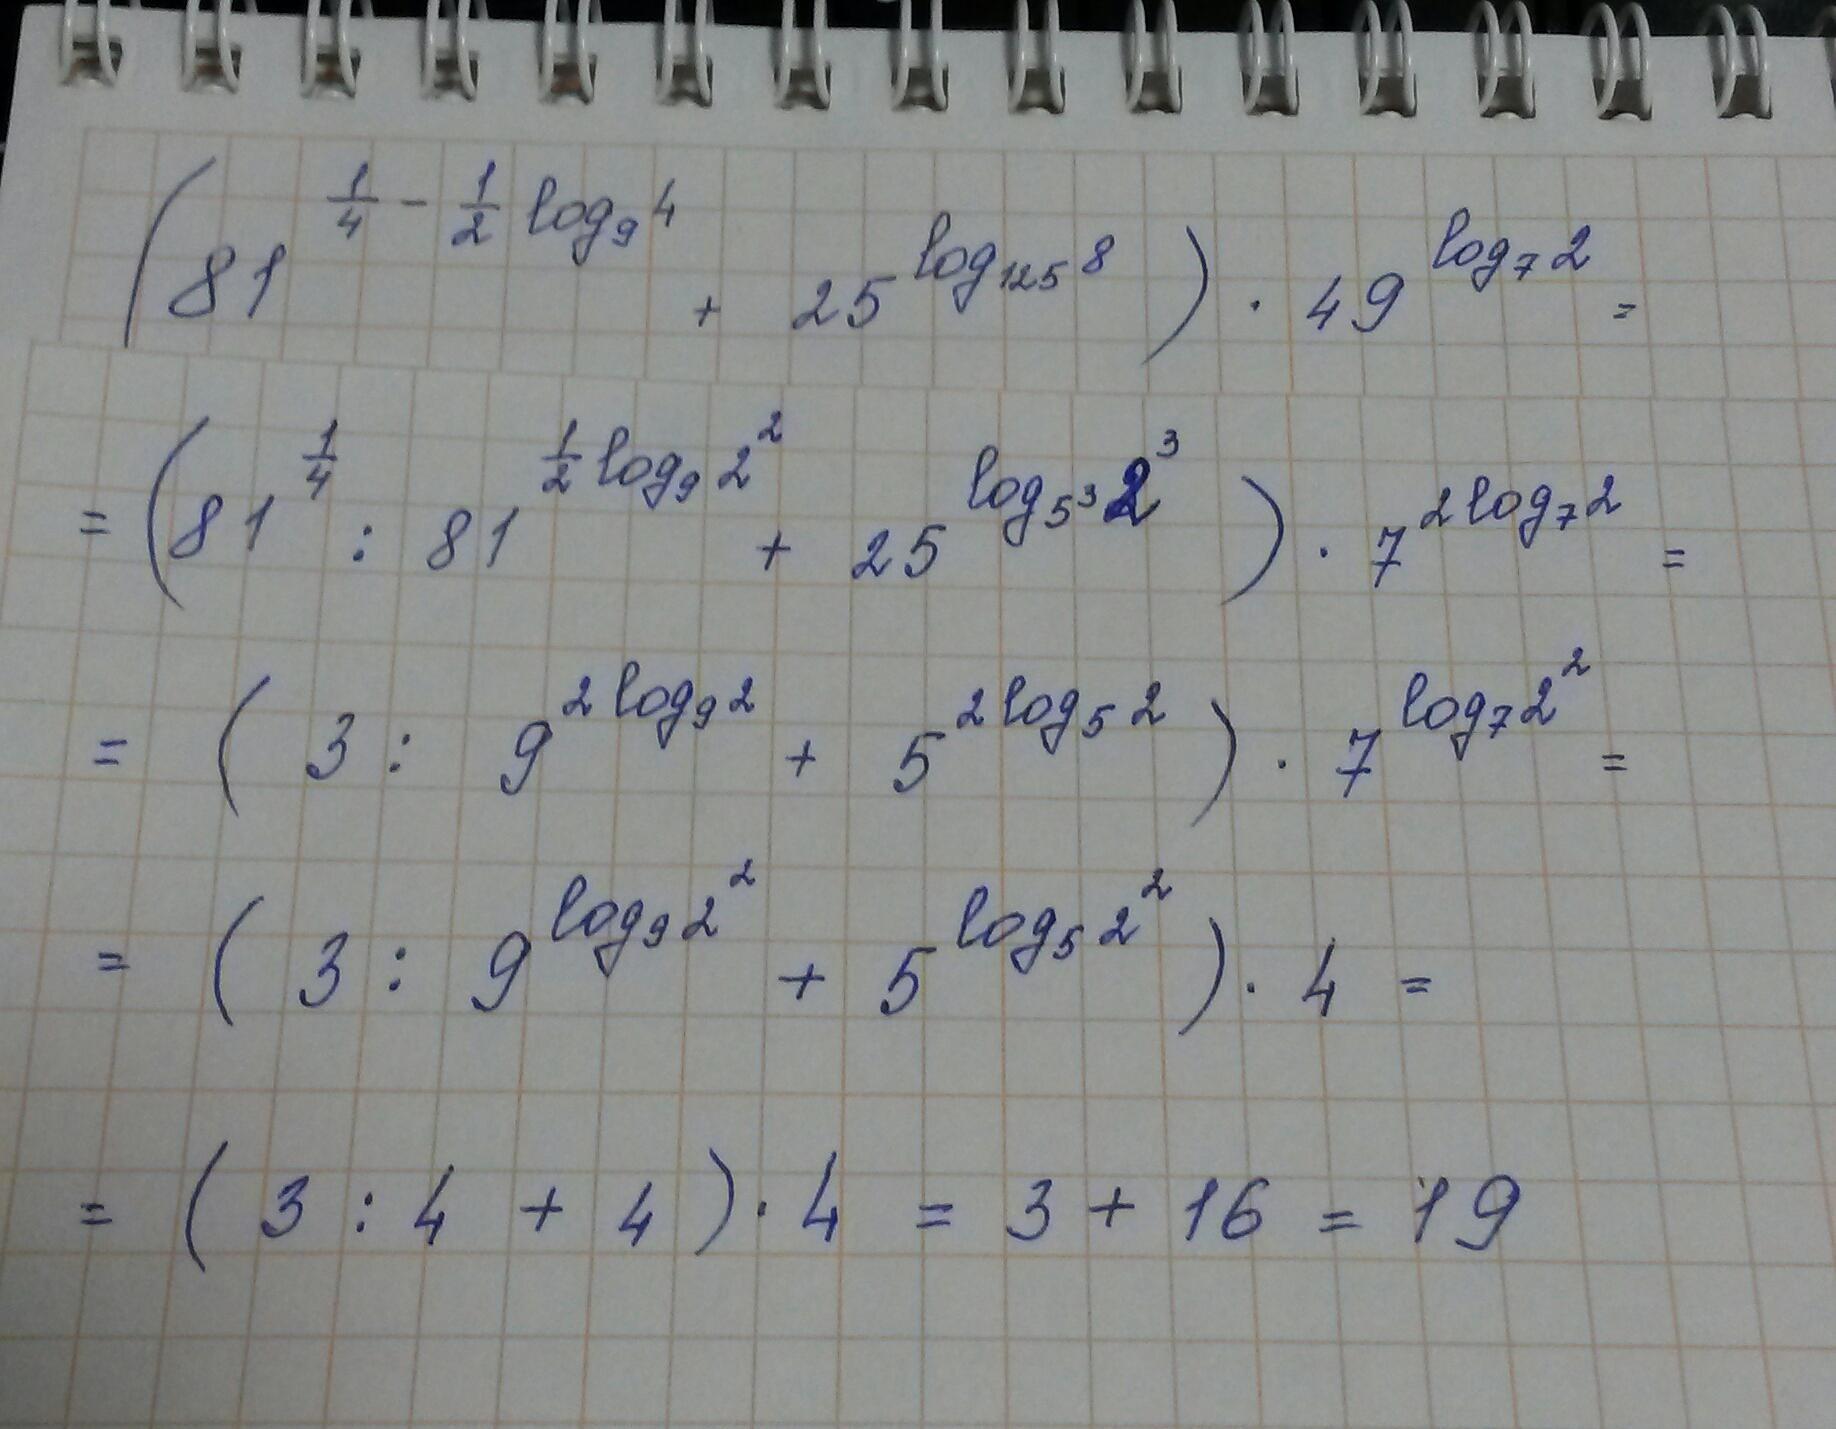 (81^{\frac{1}{4} - \frac{1}{2} log_9 4} + 25^{log_{125} 8}) · 49^{log_7 2} =
= (81^{\frac{1}{4}} : 81^{\frac{1}{2} log_9 2^2} + 25^{log_{5^3} 2^3}) · 7^{2 log_7 2} =
= (3 : 9^{2 log_9 2} + 5^{2 log_5 2}) · 7^{log_7 2^2} =
= (3 : 9^{log_9 2^2} + 5^{log_5 2^2}) · 4 =
= (3 : 4 + 4) · 4 = 3 + 16 = 19